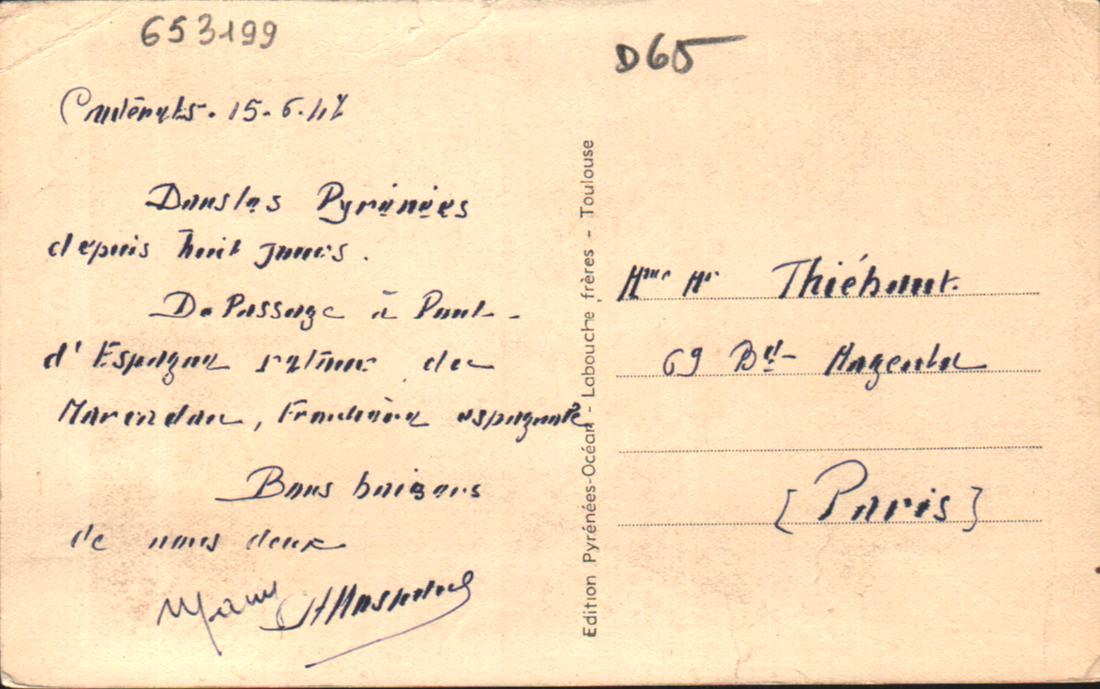 653199
D65
Cauterets. 15-6-47
Dans les Pyrénées
depuis huit jours.
De Passage à Pont-
d'Espagne retour de
Marcadau, Frontière espagnole
Bons baisers
de nous deux
Edition Pyrénées-Océan - Labouche frères - Toulouse
Mme Mr Thiébaut.
69 Bd- Magenta
[Paris]